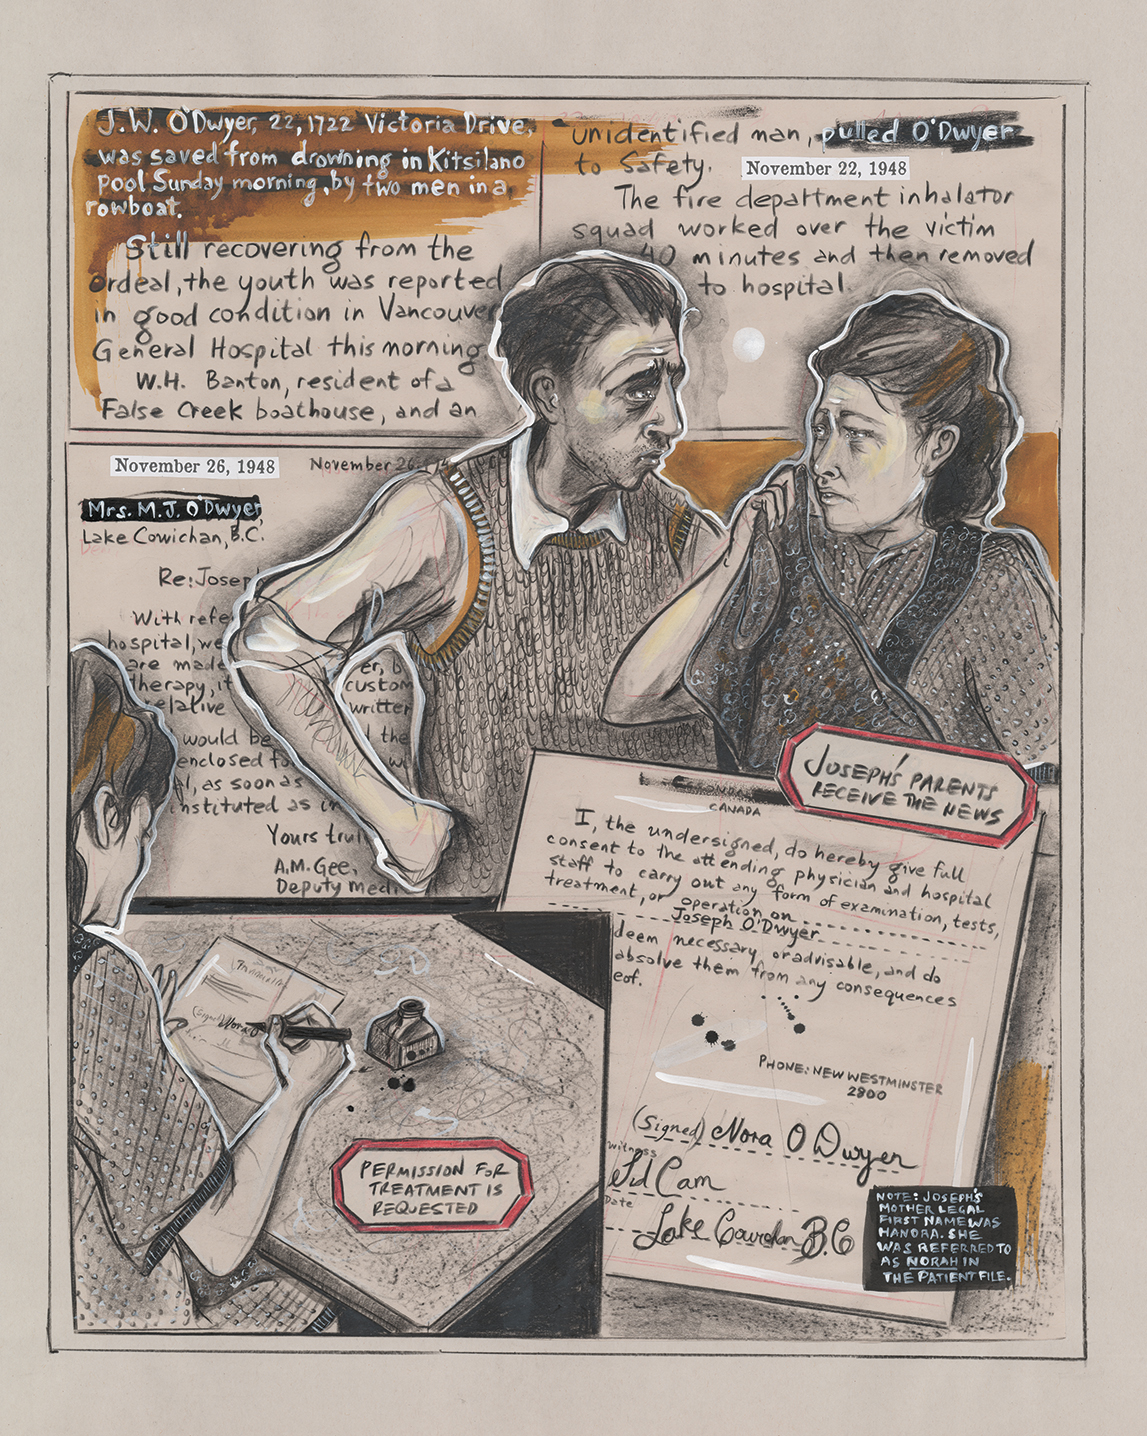 J.W. O'Dwyer, 22, 1722 Victoria Drive,
was saved from drowning in Kitsilano
pool Sunday morning, by two men in a
rowboat.
Still recovering from the
ordeal, the youth was reported
in good condition in Vancouver
General Hospital this morning
W.H. Banton, resident of a
False Creek boathouse, and an
unidentified man, pulled O'Dwyer
to Safety.
November 22, 1948
The fire department inhalator
squad worked over the victim
40 minutes and then removed
to hospital.
November 26, 1948
November 26
Mrs. M.J. O'Dwyer
Lake Cowichan, B.C.
Re: Joseph
With refe
hospital, we
are made er, b
therapy, it custom
elative writter
would be d the
enclosed fo wi
al, as soon as
instituted as in
Yours trul
A.M. Gee,
Deputy Medi
JOSEPH'S PARENTS
RECEIVE THE NEWS
CANADA
I, the undersigned, do hereby give full
consent to the attending physician and hospital
staff to carry out any form of examination, tests,
treatment, or operation on
Joseph O'Dwyer
deem necessary, or advisable, and do
absolve them from any consequences
eof.
PHONE: NEW WESTMINSTER
2800
(Signed) Nora O Dwyer
witness
Sid Cam
Date
Lake Cowichan B.C
(Signed) Nora O
PERMISSION FOR
TREATMENT IS
REQUESTED
NOTE: JOSEPH'S
MOTHER LEGAL
FIRST NAME WAS
HANORA. SHE
WAS REFERRED TO
AS NORAH IN
THE PATIENT FILE.